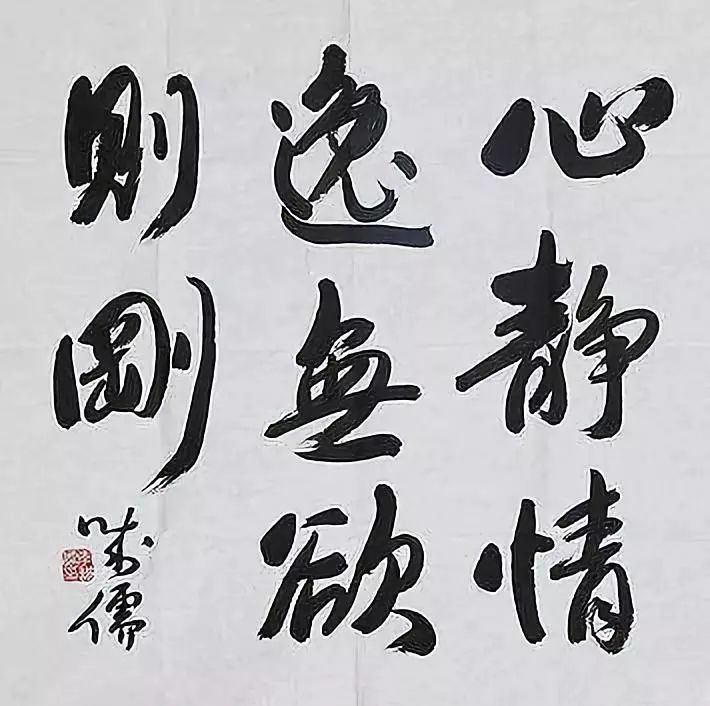 心静情
逸無欲
則剛
儒